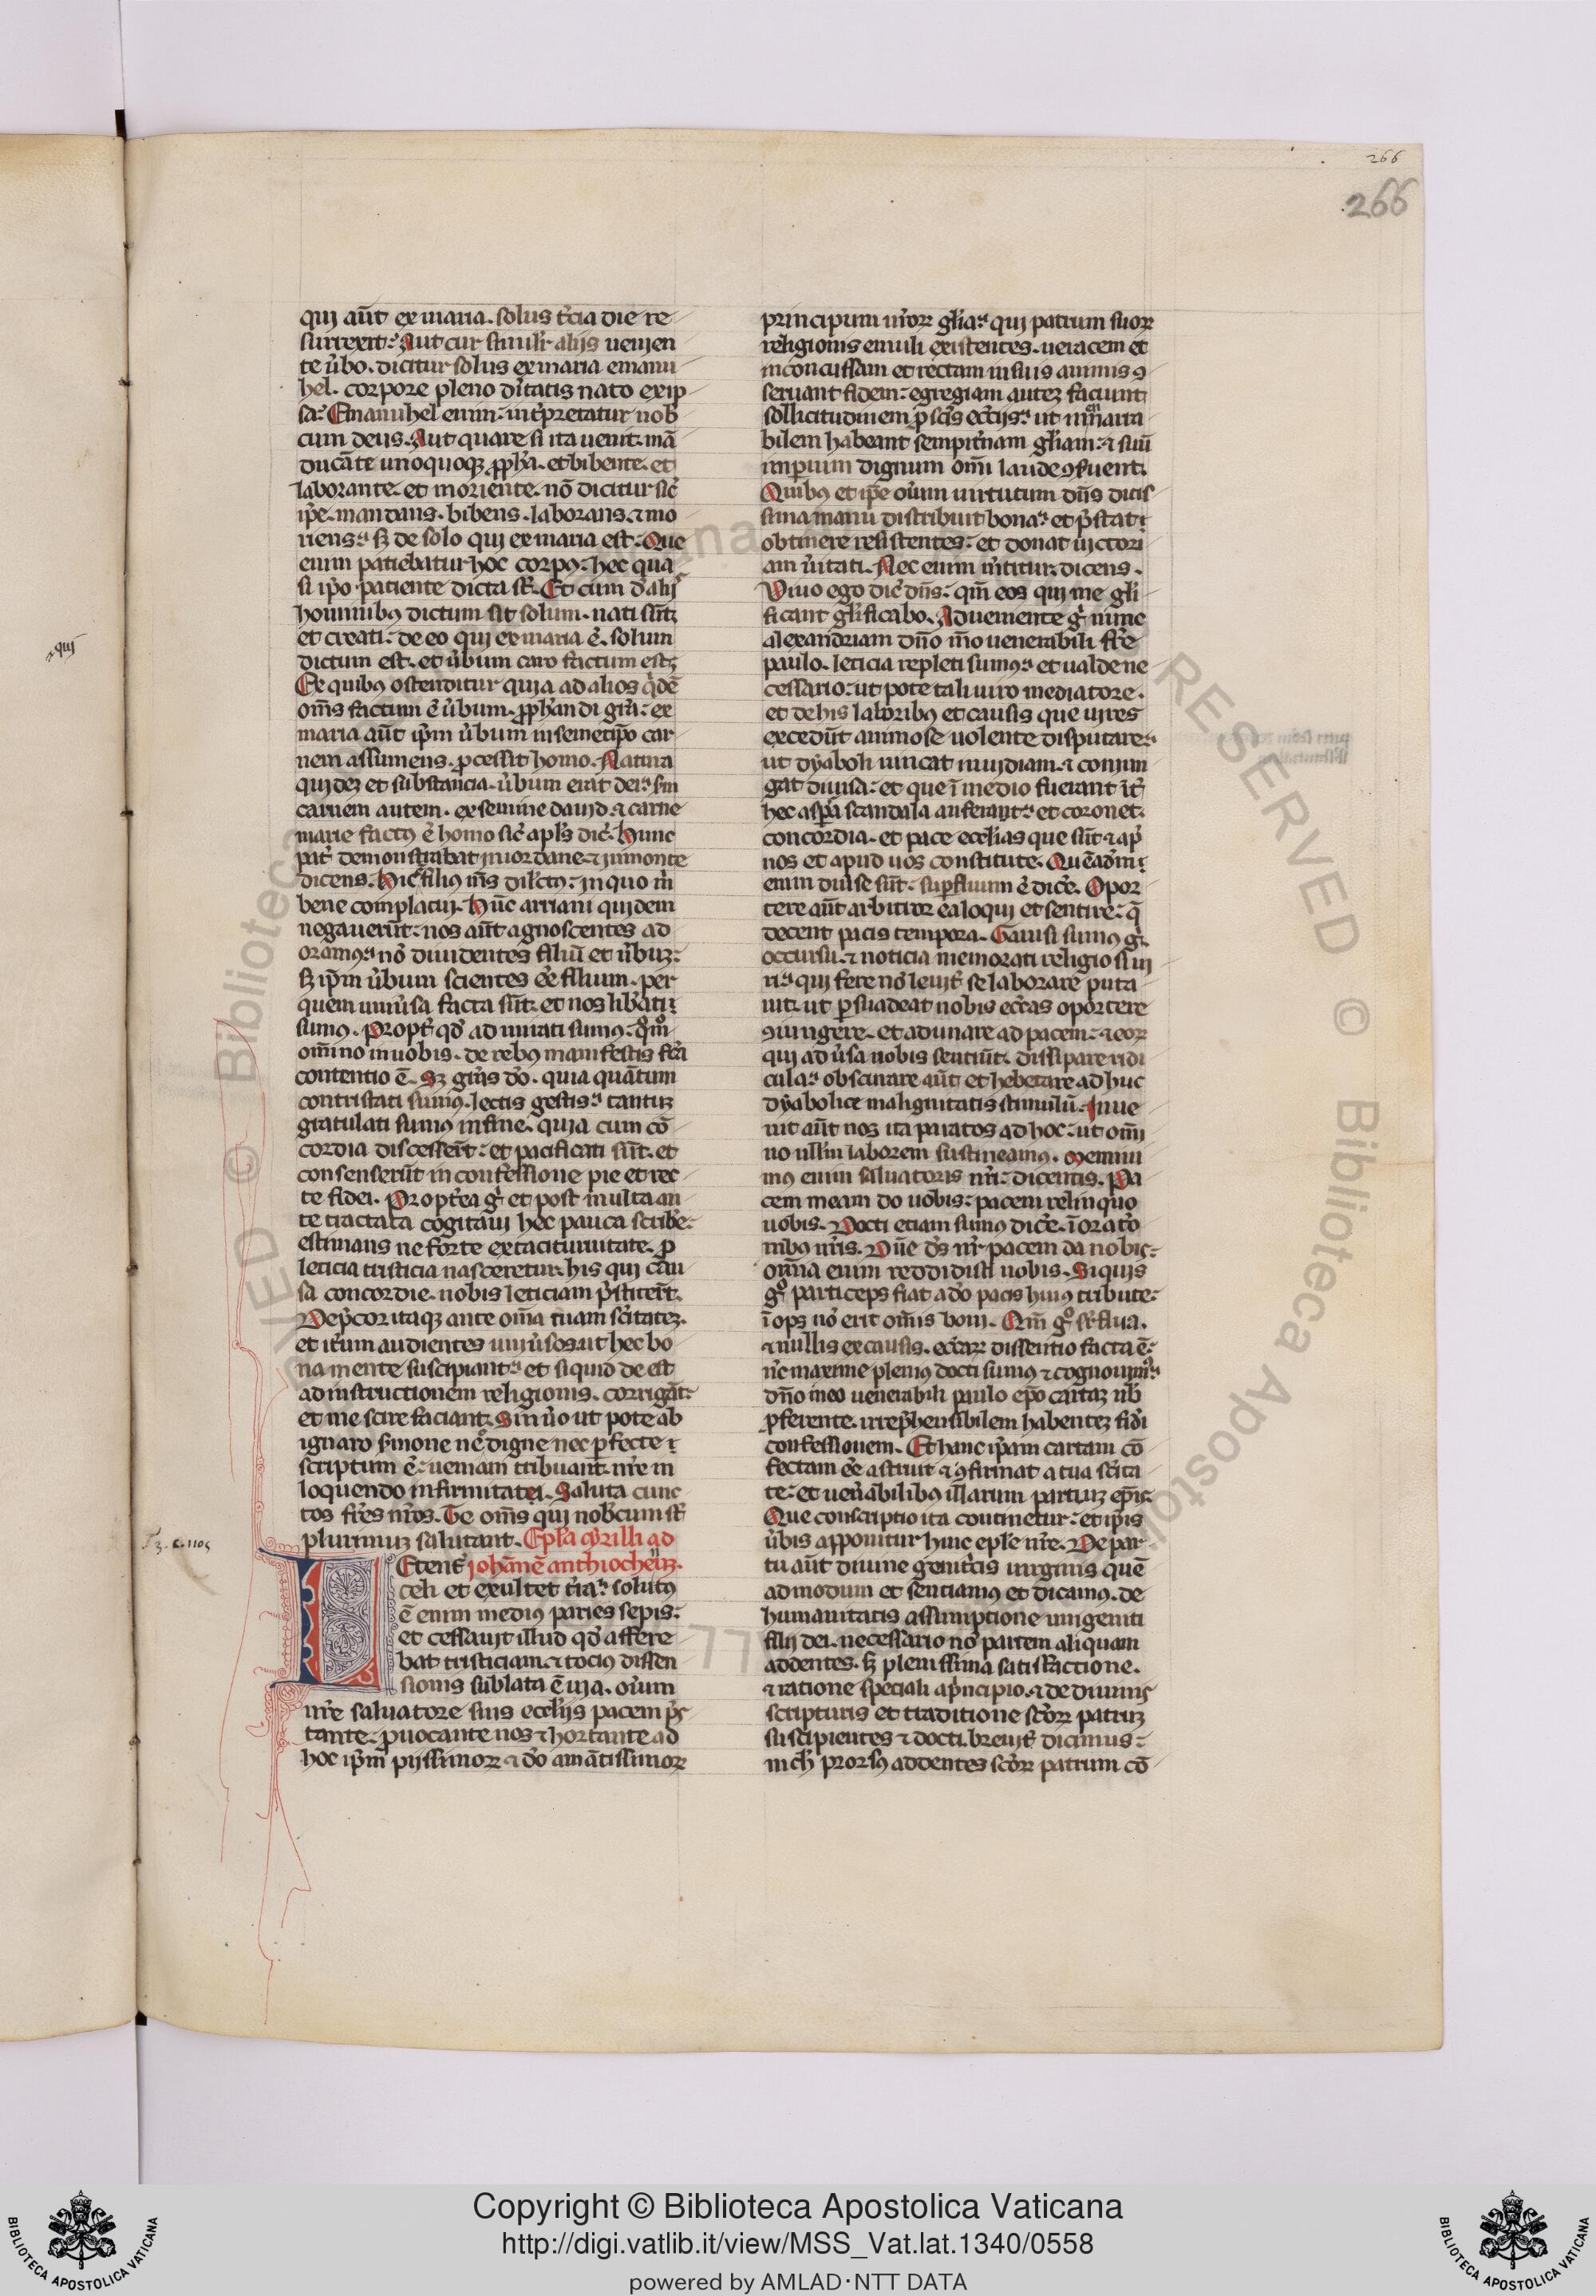 266
266
qui aūt ex maria. solus t̄cia die re
surrexit. Aut cur similr̄ alijs uenien
te ūbo. dicitur solus ex maria emanu
hel. corpore pleno dītatis nato ex ip
sa. Emanuhel enim int̄pretatur nob
cum deus. Aut quare si ita uenit. mā
ducāte unoquoqꝫ ꝓph̄a. et bibente. et
laborante. et moriente. nō dicitur sic̄
ip̄e. mandans. bibens. laborans. ⁊ mo
riens. sꝫ de solo qui ex maria est. Que
enim patiebatur hoc corpꝯ. hec qua
si ip̄o patiente dicta st̄. Et cum d̄ alij
hominibꝯ dictum sit solum. nati sūt
et creati. de eo qui ex maria ē. solum
dictum est. et ūbum caro factum est
Ex quibꝯ ostenditur quia ad alios q̄dē
om̄s factum ē ūbum. ꝓphandi gr̄a. ex
maria aūt ip̄m ūbum in semetip̄o car
nem assumens. ꝓcessit homo. Natura
quidez et substancia. ūbum erat dei. sm̄
carnem autem. ex semine dauid. ⁊ carne
marie factꝯ ē homo sic̄ apl̄s dic̄. Hunc
pat̄ demonstrabat in iordane. ⁊ in monte
dicens. Hic ē filiꝯ m̄s dilc̄tꝯ. in quo m̄
bene complacuj. Hūc arriani quidem
negauerūt. nos aūt agnoscentes ad
oramꝯ. nō diuidentes filiū et ūbuꝫ.
sꝫ ip̄m ūbum scientes ēe filium. per
quem uniūsa facta sūt. et nos lib̄ati
sumꝯ. Propt̄ qd̄ admirati sumꝯ. qm̄
omīno in uobis. de rebꝯ manifestis fc̄a
contentio ē. Sꝫ gr̄as do. quia quātum
contristati sumꝯ. lectis gestis. tantuꝫ
gratulati sumꝯ in fine. quia cum cō
cordia discesser̄t. et pacificati sūt. et
consenserūt in confessione pie et rec
te fidei. Propt̄ea ḡ et post multa an
te tractata cogitaui hec pauca scribe.
estimans ne forte ex taciturnitate. ꝓ
leticia tristicia nasceretur his qui cau
sa concordie. nobis leticiam p̄stiter̄t.
Dep̄cor itaqꝫ ante om̄a tuam sc̄itatez.
et it̄um audientes uniūsos. ut hec bo
na mente suscipiant. et si quid deest
ad instructionem religionis. corrigāt.
et me scire faciant. Sin ūo ut pote ab
ignaro s̄mone nō digne nec ꝑfecte
scriptum ē. ueniam tribuant. nr̄e in
loquendo infirmitatei. Saluta cunc
tos fr̄es nr̄os. Te om̄s qui nob̄cum st̄
plurimuꝫ salutant. Epl̄a cyrilli ad
Etent̄ johānē anthiochenuꝫ.
celi et exultet t̄ra. solutꝯ
ē enim mediꝯ paries sepis.
et cessauit illud qd̄ affere
bat tristiciam. ⁊ tociꝯ dissen
sionis sublata ē uia. oīum
nr̄e saluatore suis eccl̄ijs pacem p̄s
tante. ꝓuocante nos ⁊ hortante ad
hoc ip̄m pijssimoꝝ ⁊ do amātissimoꝝ
principum nr̄oꝝ gl̄ia. qui patrum suoꝝ
religionis emuli existentes. ueracem et
inconcussam et rectam in suis animis ꝯ
seruant fidem. egregiam autez faciunt
sollicitudinem ꝑ sc̄is ecc̄ijs. ut inmarta
bilem habeant sempit̄nam gl̄iam. ⁊ suū
imperium dignum om̄i laude ꝯseruent.
Quibꝯ et ip̄e oīum uirtutum dn̄s ditis
sima manu distribuit bona. et p̄stat
obtinere resistentes. et donat uictori
am ūitati. Nec enim m̄titur dicens.
Viuo ego dic̄ dn̄s. qm̄ eos qui me gl̄i
ficant gl̄ificabo. Adueniente ḡ nunc
alexandriam dn̄o m̄o uenerabili fr̄e
paulo. leticia repleti sumꝯ. et ualde ne
cessario. ut pote tali uiro mediatore.
et de his laboribꝯ et causis que uires
excedūt animose uolente disputare.
ut dyaboli uincat inuidiam. ⁊ coniun
gat diuisa. et que ī medio fuerant īt̄
hec aspera scandala auferant. et coronet.
concordia. et pace eccl̄ias que sūt ⁊ ap̄
nos et apud uos constitute. Quēadm̄
enim diuise sūt. suꝑfluum ē dic̄e. Opor
tere aūt arbitror ea loqui et sentire. q̄
decent pacis tempora. Gauisi sumꝯ ḡ.
occursu. ⁊ noticia memorati religiosi ui
ri. qui fere nō leuit̄ se laborare puta
uit. ut ꝑsuadeat nobis ecc̄as oportere
ꝯiungere. et adunare ad pacem. ⁊ eoꝝ
qui adūsa nobis sentiūt. dissipare ridi
cula. obscurare aūt et hebetare adhuc
dyabolice malignitatis stimulū. Inue
nit aūt nos ita paratos ad hoc. ut om̄i
no ullūm laborem sustineamꝯ. Memini
mꝯ enim saluatoris nr̄i. dicentis. Pa
cem meam do uobis. pacem relinquo
uobis. Docti etiam sumꝯ dic̄e. ī orato
nibꝯ nr̄is. Dn̄e ds̄ nr̄ pacem da nobis.
omnia enim reddidisti nobis. Si quis
ḡ particeps fiat a do pacis huiꝯ tribute.
inops nō erit om̄is boni. Qm̄ ḡ sꝫflua.
⁊ nullis ex causis. ecc̄aꝝ dissentio facta ē.
nc̄ maxime pleniꝯ docti sumꝯ ⁊ cognouimꝯ.
dn̄o meo uenerabili paulo epo cartaꝫ nb̄
ꝓferente. irrep̄hensibilem habentez fidi
confessionem. Et hanc ip̄am cartam cō
fectam ēe astruit ⁊ ꝯfirmat a tua sc̄ita
te. et uen̄abilibꝯ illarum partiuꝫ ep̄is.
Que conscriptio ita continetur. et ip̄is
ūbis apponitur huic epl̄e nr̄e. De par
tu aūt diuine genit̄cis uirginis quē
admodum et sentiamꝯ et dicamꝯ. de
humanitatis assumptione unigeniti
filij dei. necessario nō partem aliquam
addentes. sꝫ plenissima satisfactione.
⁊ ratione speciali a p̄ncipio. ⁊ de diuinis
scripturis et traditione sc̄oꝝ patruꝫ
suscipientes ⁊ docti. breuit̄ dicimus.
nich̄ prorsꝯ addentes sc̄oꝝ patrum cō
Copyright © Biblioteca Apostolica Vaticana
http://digi.vatlib.it/view/MSS_Vat.lat.1340/0558
powered by AMLAD·NTT DATA
BIBLIOTECA APOSTOLICA VATICANA
BIBLIOTECA APOSTOLICA VATICANA